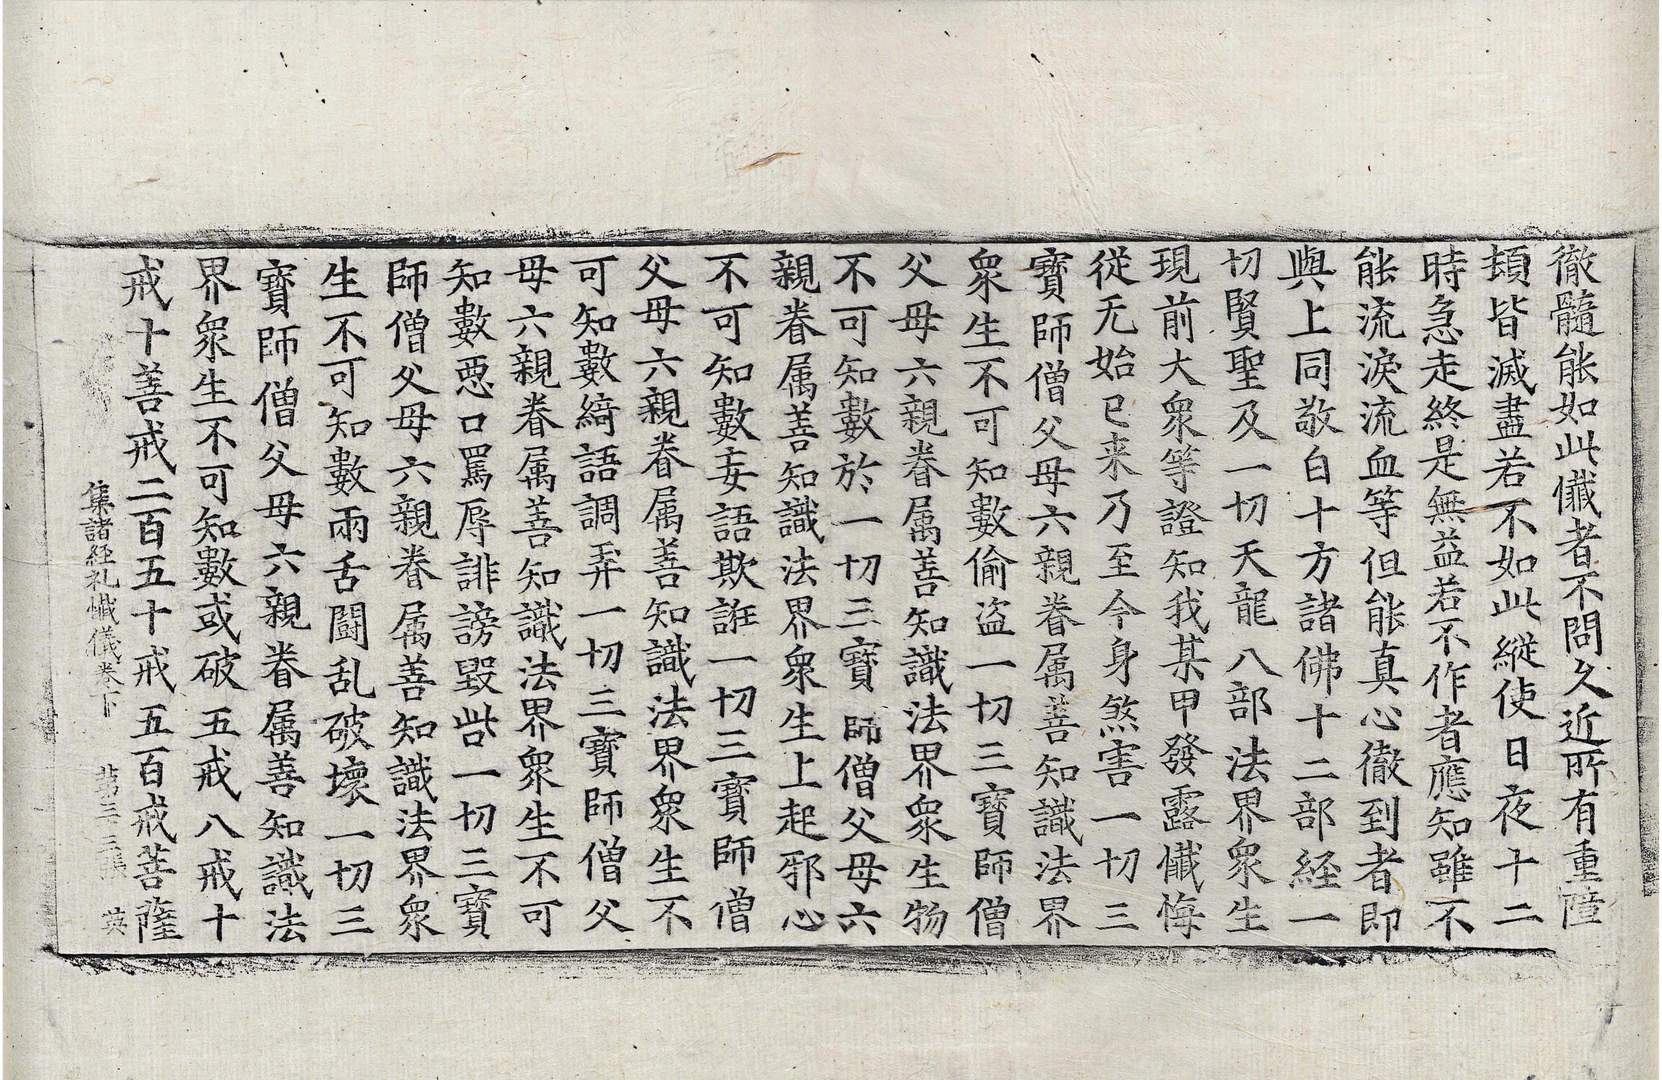 徹髓能如此懴者不問久近所有重障
頓皆滅盡若不如此縱使日夜十二
時急走終是無益若不作者應知雖不
能流淚流血等但能真心徹到者即
與上同敬白十方諸佛十二部経一
切賢聖及一切天龍八部法界衆生
現前大衆等證知我某甲發露懴悔
従无始已来乃至今身煞害一切三
寳師僧父母六親眷属善知識法界
衆生不可知數偷盗一切三寳師僧
父母六親眷属善知識法界衆生物
不可知數於一切三寳師僧父母六
親眷属善知識法界衆生上起邪心
不可知數妄語欺誑一切三寳師僧
父母六親眷属善知識法界衆生不
可知數綺語調弄一切三寳師僧父
母六親眷属善知識法界衆生不可
知數惡口罵辱誹謗毀呰一切三寳
師僧父母六親眷属善知識法界衆
生不可知數兩舌鬪乱破壞一切三
寳師僧父母六親眷属善知識法
界衆生不可知數或破五戒八戒十
戒十善戒二百五十戒五百戒菩薩
集諸経礼懴儀卷下 苐三三張 英